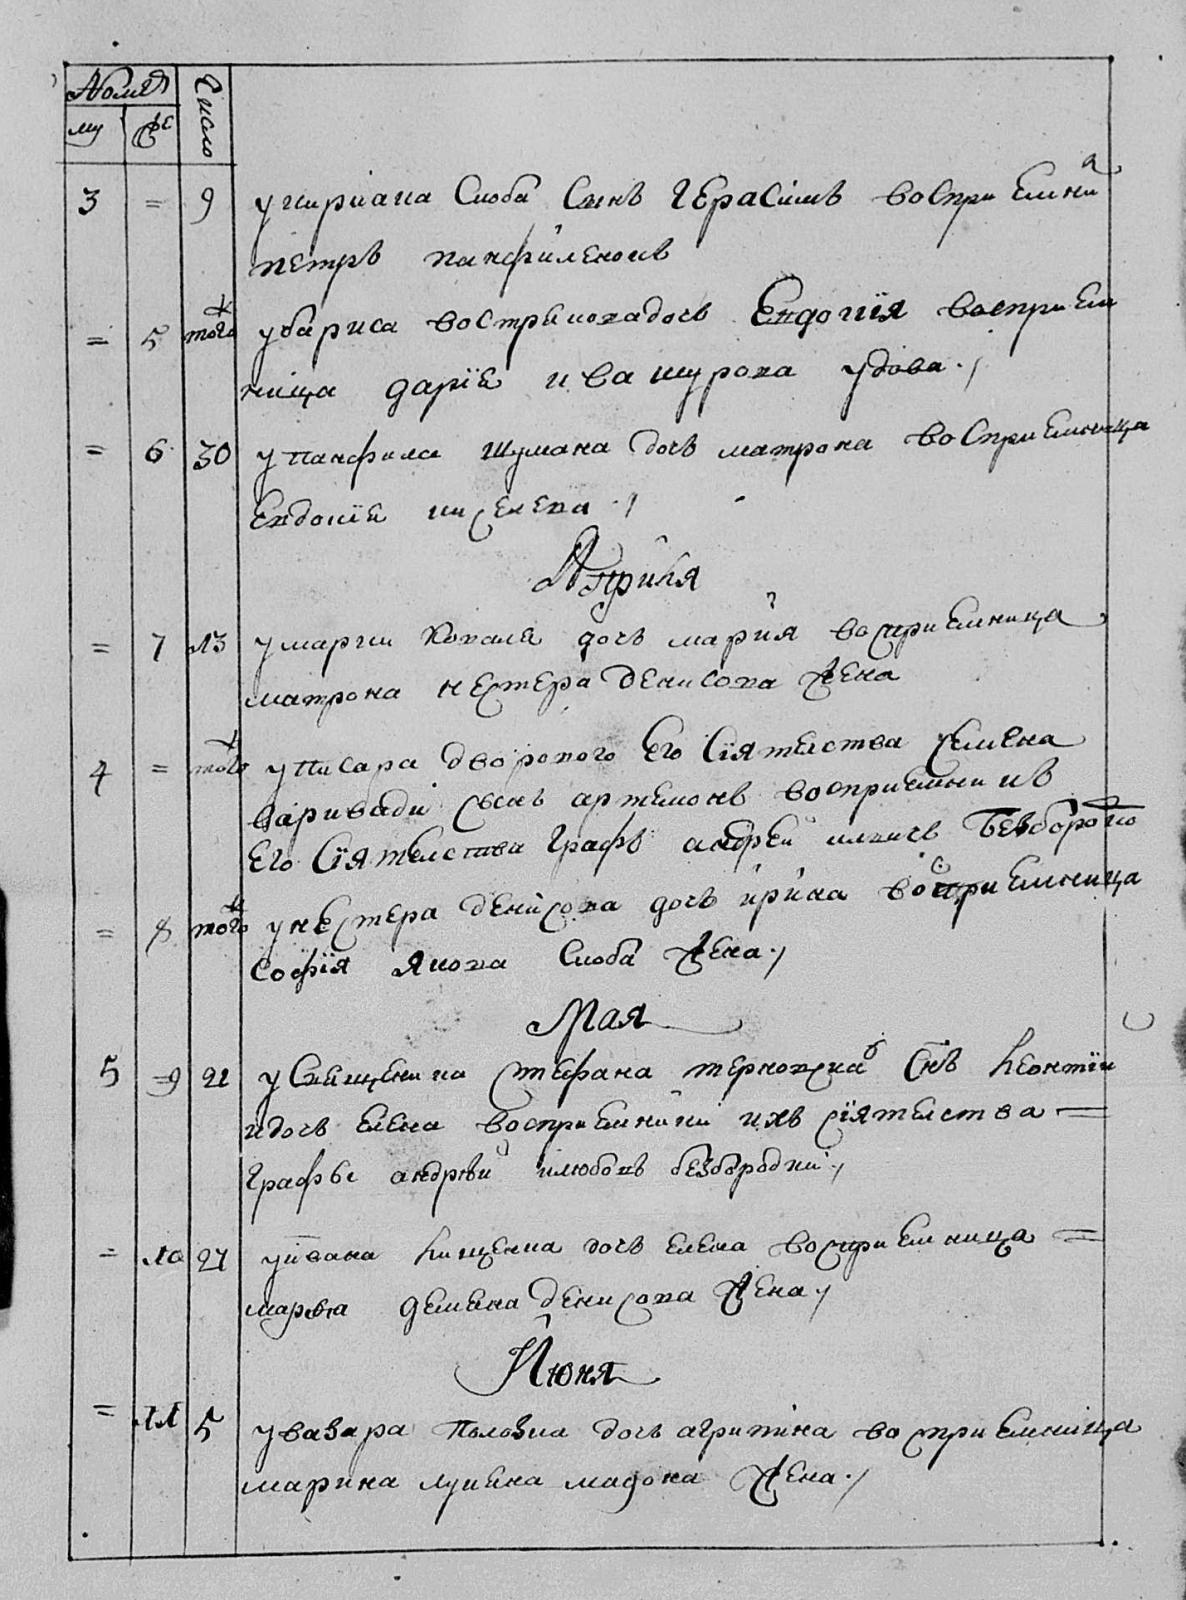 Номѣя
му
Число
3 = 9 у кириака Скоба Синъ Герасимъ восприемни
петръ панфиленокъ
= 5 того у бариса вострикова дочъ Евдокїя восприем
ница дарїе ивашурова удова
= 6 30 у панфила шумана дочъ матрона восприемница
Евдокїе киселева
Априля
= 7 13 у марки коваля дочъ марія восприемница
матрона нестера денисова жена
4 = того у писара дворового Его Сїятелства семена
синъ артемонъ восприемникъ
Его Сїятелства Графъ андрей илличъ Безбородко
= 8 того у нестера денисова дочъ ирина восприемница
софїя якова Скоба жена
Мая
5 =9 21 у священика стефана Снъ Леонтїи
и дочъ елена восприемники ихъ сїятелства =
Графы андрѣй и любовъ безбородки
= 10 27 у ивана кищенка дочъ елена восприемница =
марѳа демяна денисова жена
Июня
= 11 5 у вазара половка дочъ агрипина восприемница
марина лукяна жена